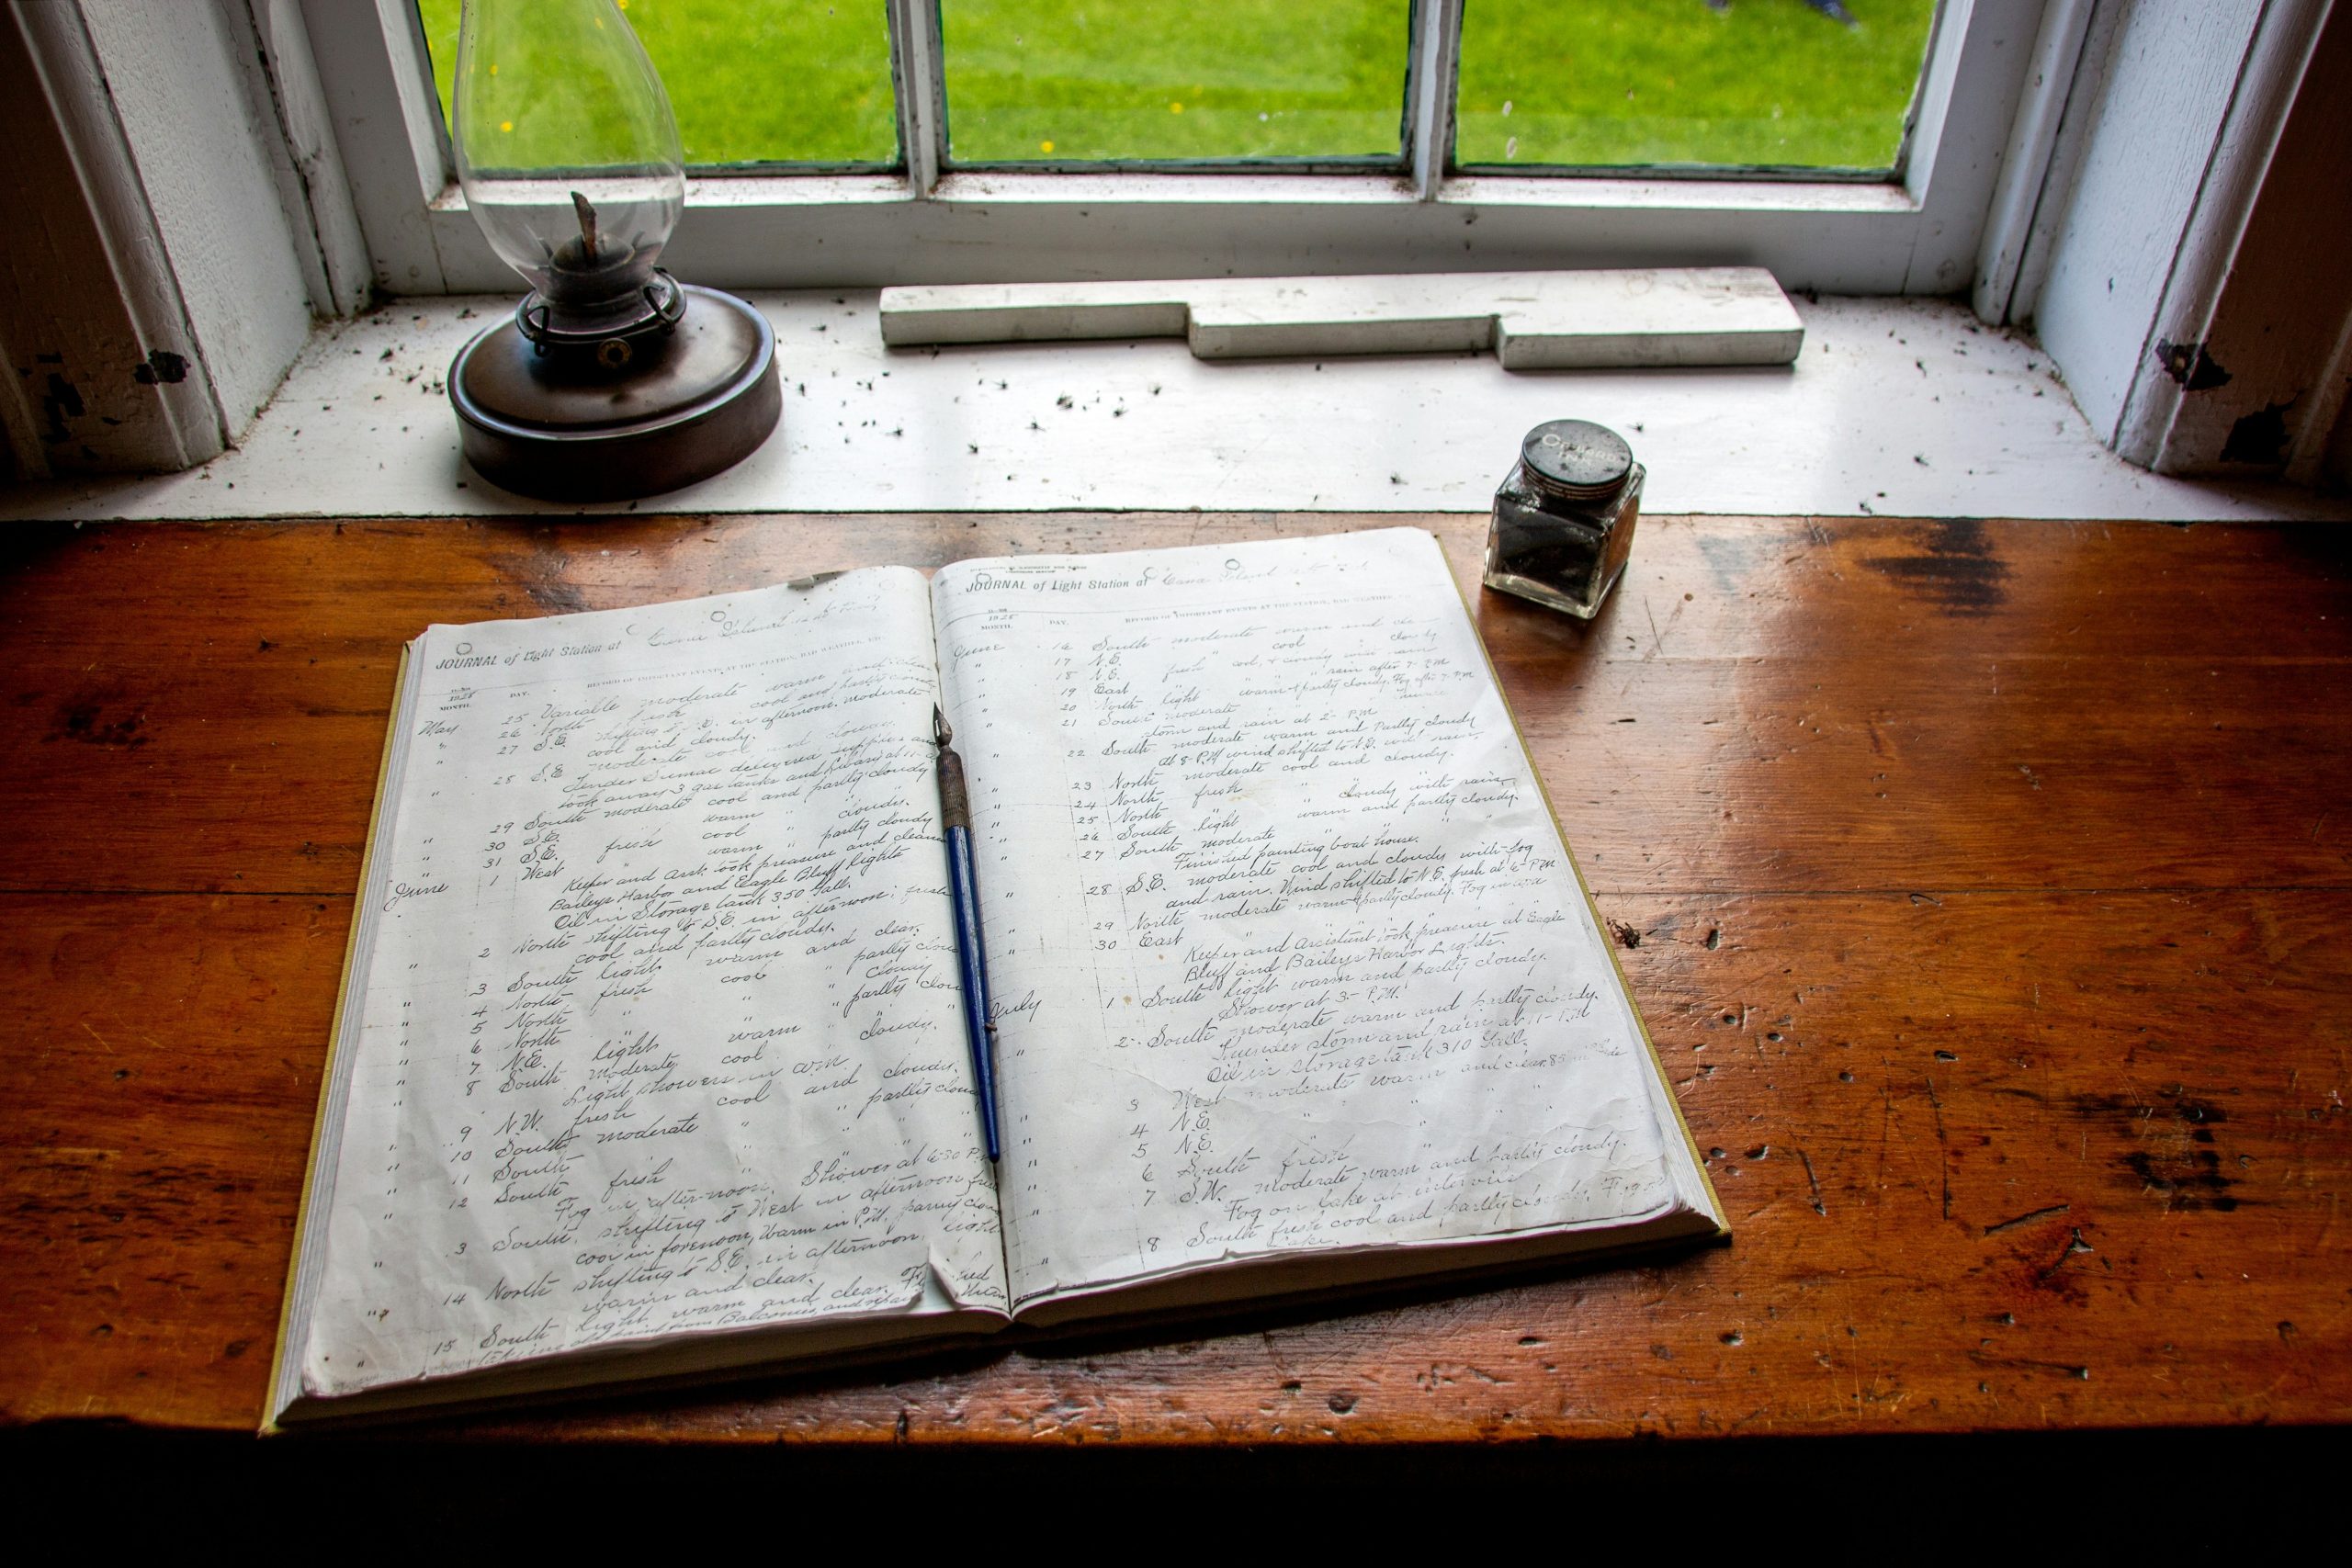 JOURNAL of Light Station at Cana Island
1928
MONTH. DAY. RECORD OF IMPORTANT EVENTS AT THE STATION, BAD WEATHER, ETC.
May 25 Variable moderate warm and clear
" 26 North fresh cool and partly
" 27 S.E. shifting to S.E. in afternoon. moderate
cool and cloudy.
" 28 S.E. moderate cool and cloudy.
Tender Sumac delivered supplies and
took away 3 gas tanks and library at 11-
" 29 South moderate cool and partly cloudy
" 30 S.E. warm " cloudy.
" 31 S.E. fresh cool " partly cloudy
June 1 West warm "
Keeper and Asst. took preasure and cleaned
Baileys Harbor and Eagle Bluff lights
Oil in Storage tank 350 Gall.
" 2 North shifting to S.E. in afternoon; fresh
cool and partly cloudy.
" 3 South light warm and clear.
" 4 North fresh cool " partly
" 5 North " " cloudy
" 6 North " " " partly
" 7 N.E. light warm " cloudy.
" 8 South moderate cool
Light showers in a.m.
" 9 N.W. fresh cool and cloudy.
" 10 South moderate " " partly
" 11 South "
" 12 South fresh " Shower at 6-30 P.
Fog in after-noon.
3 South, shifting to West in afternoon
cool in forenoon, Warm in P.M. partly
" 14 North shifting to S.E. in afternoon, light
warm and clear.
" 15 South light warm and clear.
old paint from Balconies, and
JOURNAL of Light Station at Cana Island
1928
MONTH. DAY. RECORD OF IMPORTANT EVENTS AT THE STATION, BAD WEATHER,
June 16 South moderate warm and
" 17 N.E. " cool cloudy
" 18 N.E. fresh cool, & cloudy with rain
" 19 East " " " rain after 7- P.M
" 20 North light warm & partly cloudy. Fog after 7. P.M
" 21 South moderate
storm and rain at 2- P.M
" 22 South moderate warm and Partly cloudy
at 8-P.M wind shifted to N.E. with rain.
" 23 North moderate cool and cloudy.
" 24 North fresh
" 25 North " " cloudy with rain,
" 26 South light warm and partly cloudy.
" 27 South moderate " "
Finished painting boat house.
" 28 S.E. moderate cool and cloudy with fog
and rain. Wind shifted to N.E. fresh at 6- P.M
" 29 North moderate warm & partly cloudy. Fog in
" 30 East " " " "
Keeper and Assistant took preasure at Eagle
Bluff and Baileys Harbor Lights.
July 1 South light warm and partly cloudy.
Shower at 3- P.M.
" 2- South moderate warm and partly cloudy.
Thunder storm and rain at 11- P.M
Oil in storage tank 310 Gall.
3 West moderate warm and clear. 85
" 4 N.E. " " "
" 5 N.E.
" 6 South fresh "
" 7 S.W. moderate warm and partly cloudy.
Fog on Lake at intervils
" 8 South fresh cool and partly cloudy. Fog on
Lake.
INK